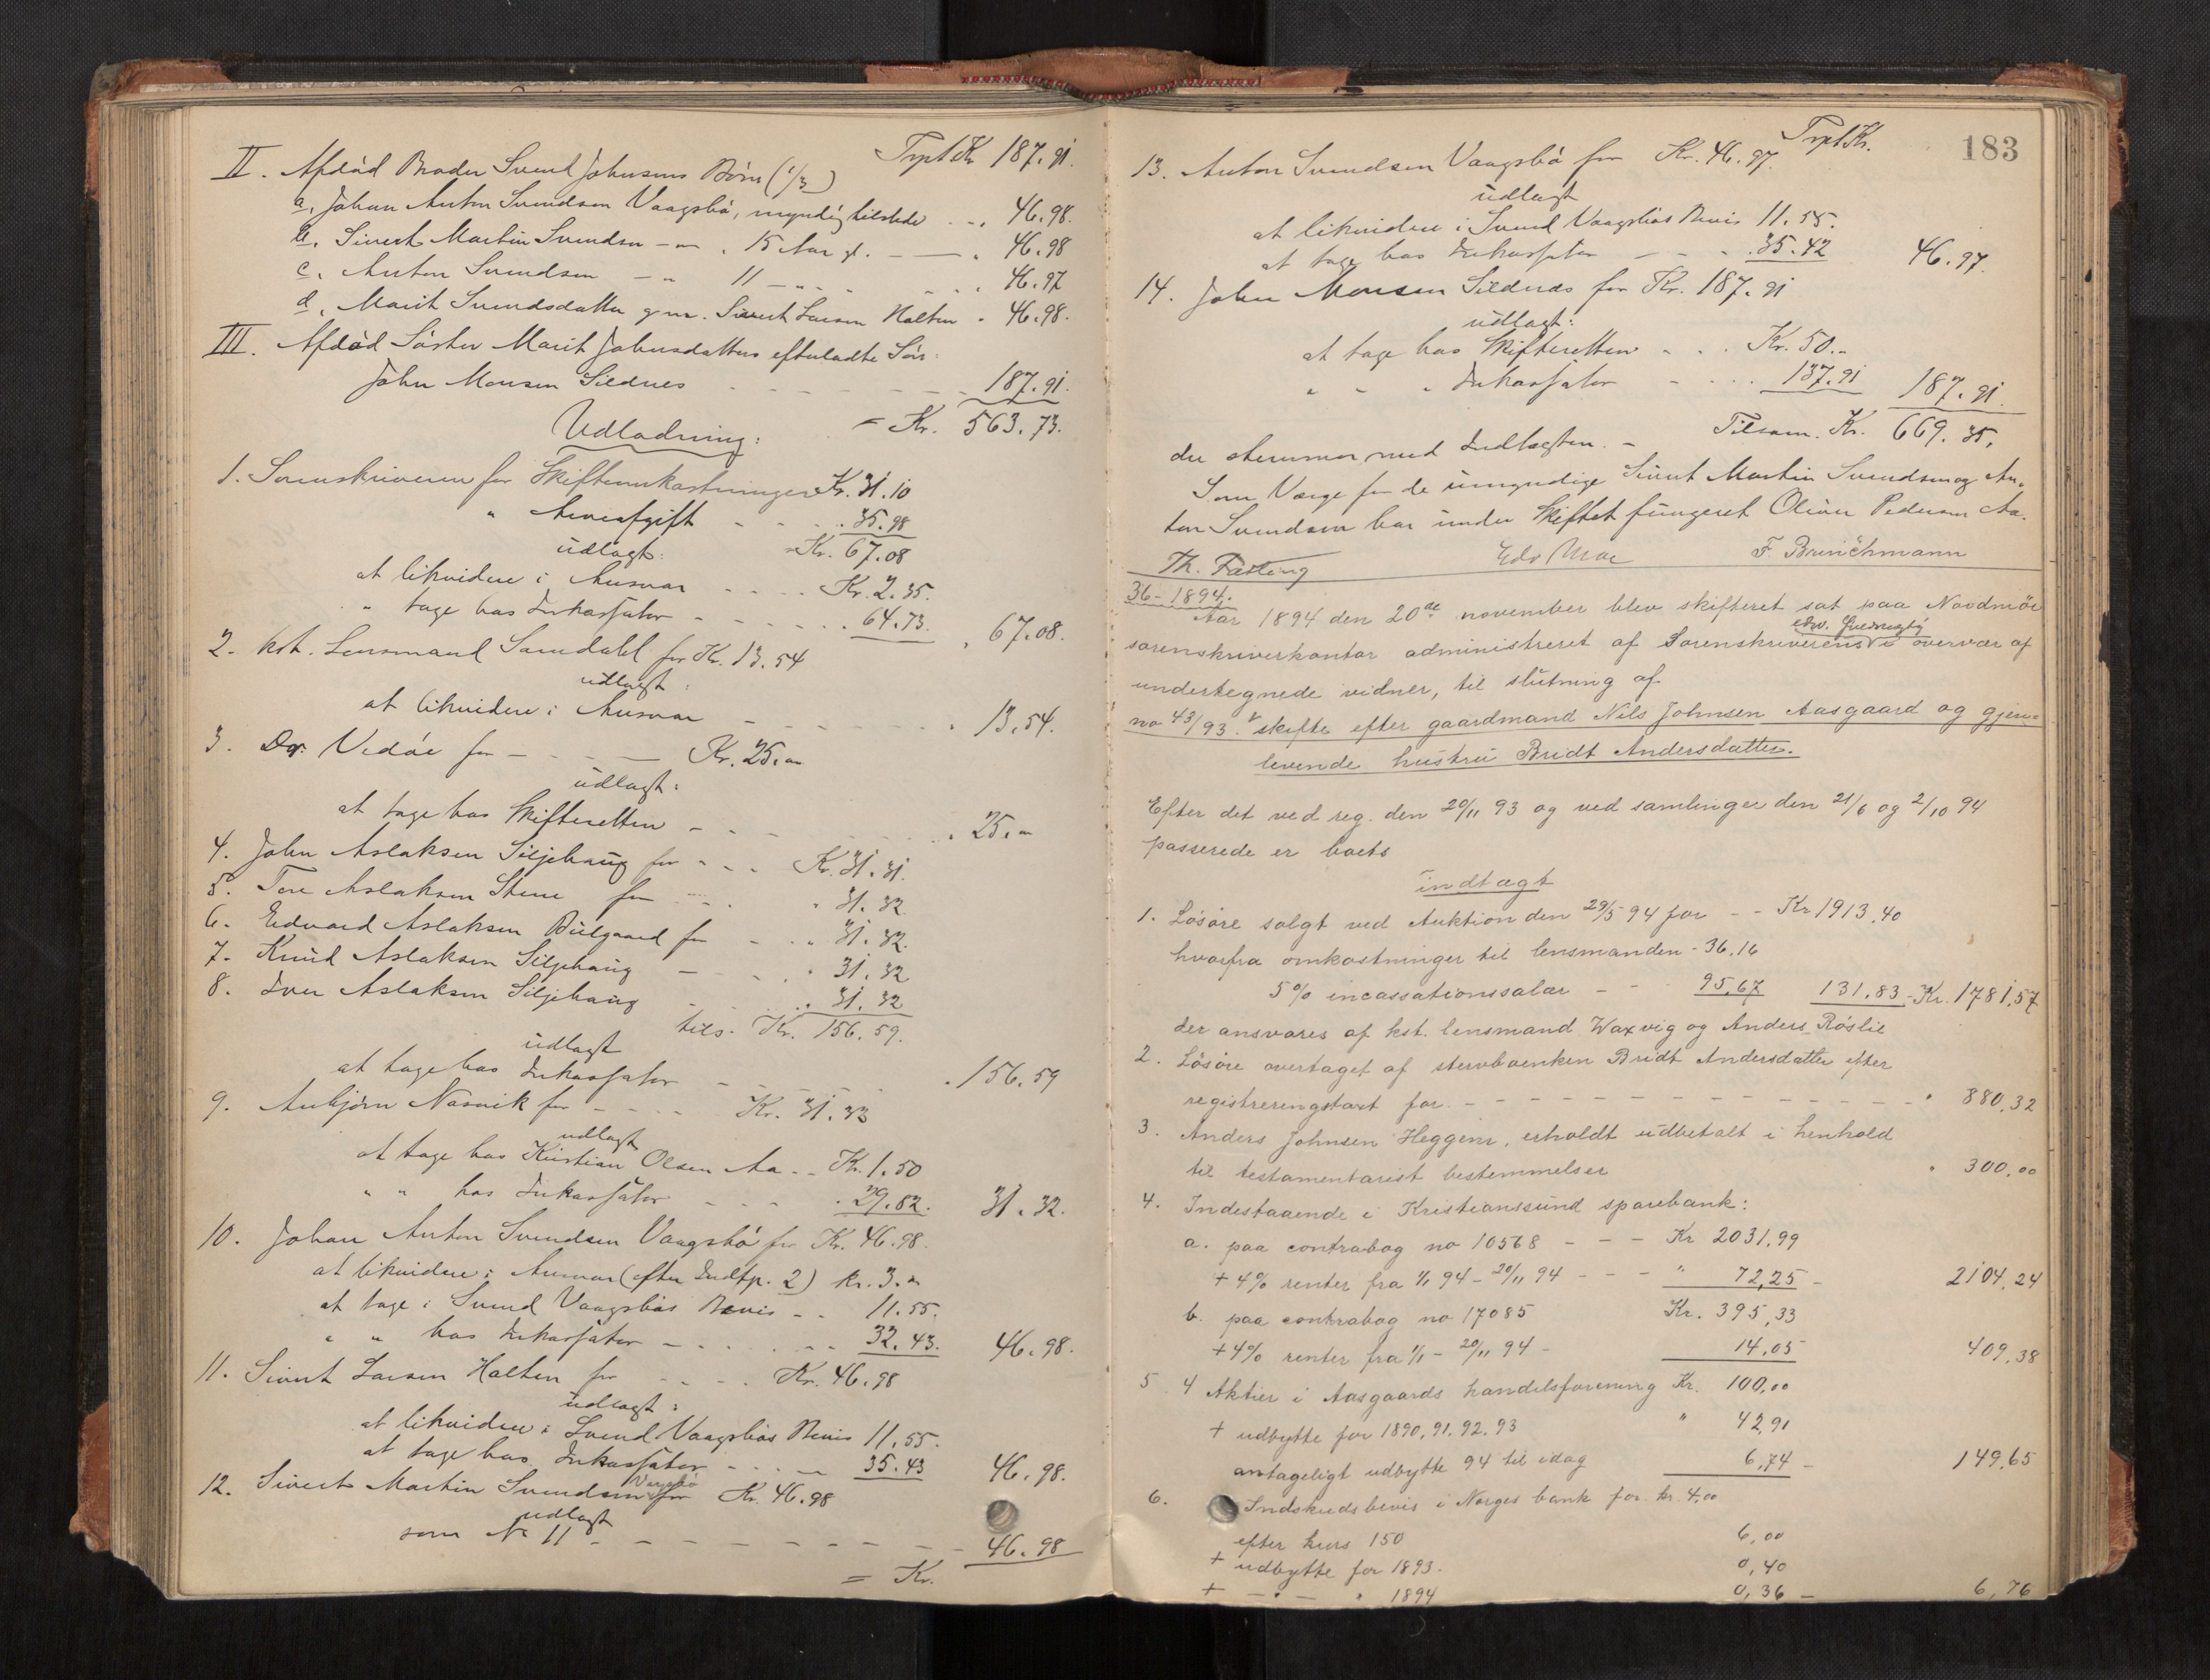 Trpt Kr. 187.91.
II. Afdød Broder Svend Johnsens Børn (1/3)
a. Johan Anton Svendsen Vaagsbø, myndig tilstede - . 46.98.
b. Sivert Martin Svendsen - " - . 15 Aar gl. - - . 46.98
c. Anton Svendsen - " 11 - " - . . . 46.97
d. Marit Svendsdatter g.m. Sivert Larsen Halten . 46.98.
III. Afdød Søster Marit Johnsdatters efterladte Søn:
John Monsen Sildnes - - - - - 187.91.
= Kr. 563.73.
Udlodning:
1. Sorenskriveren for Skifteomkostninger Kr. 31.10
" Arveafgift - - - . 35.98
udlagt: = Kr. 67.08
at likvidere i Ansvar - - - - Kr. 2.35.
" tage hos Inkassator - - - - . 64.73. . 67.08.
2. kst. Lensmand Samdahl for Kr. 13.54
udlagt:
at likvidere i Ansvar - - - - - . 13.54.
3. Dr. Vedøe for - - - - Kr. 25. "
udlagt:
at tage hos Skifteretten - - - - . 25. "
4. John Aslaksen Siljehaug for - - - Kr. 31.31.
5. Tore Aslaksen Stene for - - - " 31.32
6. Edvard Aslaksen Bülgaard for - . . " 31.32.
7. Knud Aslaksen Siljehaug - - - " 31.32
8. Iver Aslaksen Siljehaug - - - . 31.32
tils. Kr. 156.59.
udlagt
at tage hos Inkassator - - - - - . 156.59
9. Anbjørn Nasvik for - - - - Kr. 31.32
udlagt
at tage hos Kristian Olsen Aa - - Kr. 1.50
" " hos Inkassator - - - . 29.82. 31.32.
10. Johan Anton Svendsen Vaagsbø for Kr. 46.98.
at likvidere i Ansvar (efter Indtp. 2) kr. 3. "
at tage i Svend Vaagsbøs Bevis - - 11.55.
" " hos Inkassator - - - - 32.43. 46.98.
11. Sivert Larsen Halten for - - - - Kr. 46.98
udlagt:
at likvidere i Svend Vaagsbøs Bevis 11.55.
at tage hos Inkassator - - - 35.43 46.98.
12. Sivert Martin Svendsen Vaagsbø for Kr. 46.98
udlagt
som No 11 - - - - - - - - - 46.98
= Kr.
183
Trpt Kr.
13. Anton Svendsen Vaagsbø for Kr. 46.97.
udlagt
at likvidere i Svend Vaagsbøs Bevis 11.55.
at tage hos Inkassator - - - . 35.42 46.97.
14. John Monsen Sildnes for Kr. 187.91
udlagt:
at tage hos Skifteretten - . . Kr. 50. -
" - " Inkassator - . . . 137.91 187.91.
Tilsam. Kr. 669.35.
der stemmer med Indtægten. -
Som Værge for de umyndige Sivert Martin Svendsen og An-
ton Svendsen har under Skiftet fungeret Oliver Pedersen Aa.
Th. Fasting Edv Moe F. Brinchmann
36 - 1894.
Aar 1894 den 20de november blev skifteret sat paa Nordmøre
sorenskriverkontor administreret af Sorenskriverens edsv. fuldmægtig i overvær af
undertegnede vidner, til slutning af
no 43/93. skifte efter gaardmand Nils Johnsen Aasgaard og gjen-
levende hustru Bridt Andersdatter.
Efter det ved reg. den 20/11 93 og ved samlinger den 21/6 og 2/10 94
passerede er boets
indtægt
1. Løsøre solgt ved Auktion den 29/5 94 for - - Kr 1913.40
hvorfra omkostninger til lensmanden - 36.16
5% incassationssalær - - - 95,67 131.83 - Kr. 1781,57
der ansvares af kst. lensmand Waxvig og Anders Røslie
2. Løsøre overtaget af stervboenken Bridt Andersdatter efter
registreringstaxt for - - - - - - - - - - - - - " 880,32
3. Anders Johnsen Heggem, erholdt udbetalt i henhold
til testamentarisk bestemmelser " 300,00
4. Indestaaende i Kristianssund sparebank:
a. paa contrabog no 10568 - - - Kr 2031,99
+ 4% renter fra 1/1 94 - 20/11 94 - - - " 72,25 - 2104,24
b. paa contrabog no 17085 Kr. 395,33
+ 4% renter fra 1/1 - 20/11 94 - 14,05 409,38
5. 4 Aktier i Aasgaards handelsforening Kr. 100,00
+ udbytte for 1890, 91, 92, 93 " 42,91
antageligt udbytte 94 til idag 6,74 - 149,65
6. Indskudsbevis i Norges bank for kr. 4,00
efter kurs 150 6,00
+ udbytte for 1893. 0,40
+ - " - " 1894 0,36 - 6,76